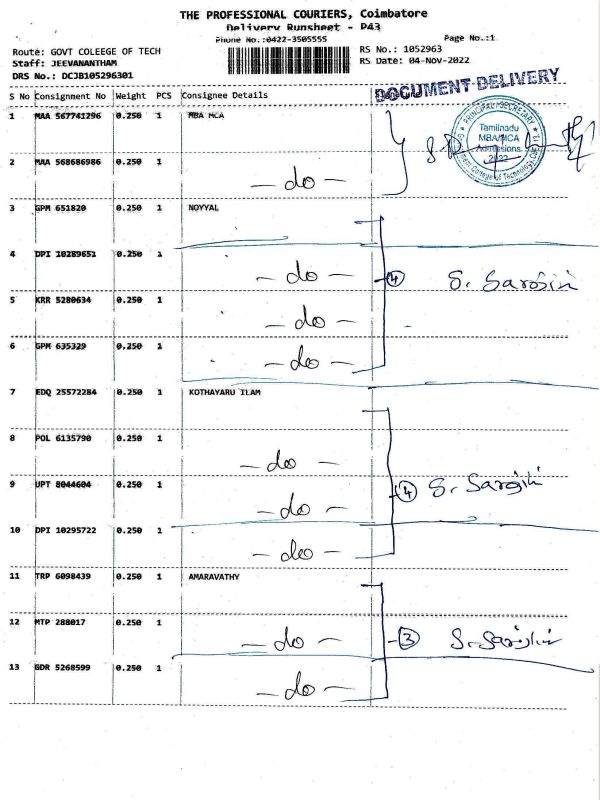 THE PROFESSIONAL COURIERS, Coimbatore
Delivery Runsheet - P43
Phone No.:0422-3505555
Page No.:1
Route: GOVT COLEEGE OF TECH
RS No.: 1052963
Staff: JEEVANANTHAM
RS Date: 04-Nov-2022
DRS No.: DCJB105296301
DOCUMENT DELIVERY
S No Consignment No Weight PCS Consignee Details
1 MAA 567741296 0.250 1 MBA MCA
PRINCIPAL / SECRETARY
Tamilnadu
MBA/MCA
Admissions
2022
2 MAA 568686986 0.250 1
- do -
3 GPM 651820 0.250 1 NOYYAL
4 DPI 10289651 0.250 1
- do - 4 S. Sarojini
5 KRR 5280634 0.250 1
- do -
6 GPM 635329 0.250 1
- do -
7 EDQ 25572284 0.250 1 KOTHAYARU ILAM
8 POL 6135790 0.250 1
- do -
9 UPT 8044604 0.250 1 4 S. Sarojini
- do -
10 DPI 10295722 0.250 1
- do -
11 TRP 6098439 0.250 1 AMARAVATHY
12 MTP 288017 0.250 1
- do - 3 S. Sarojini
13 GDR 5268599 0.250 1
- do -